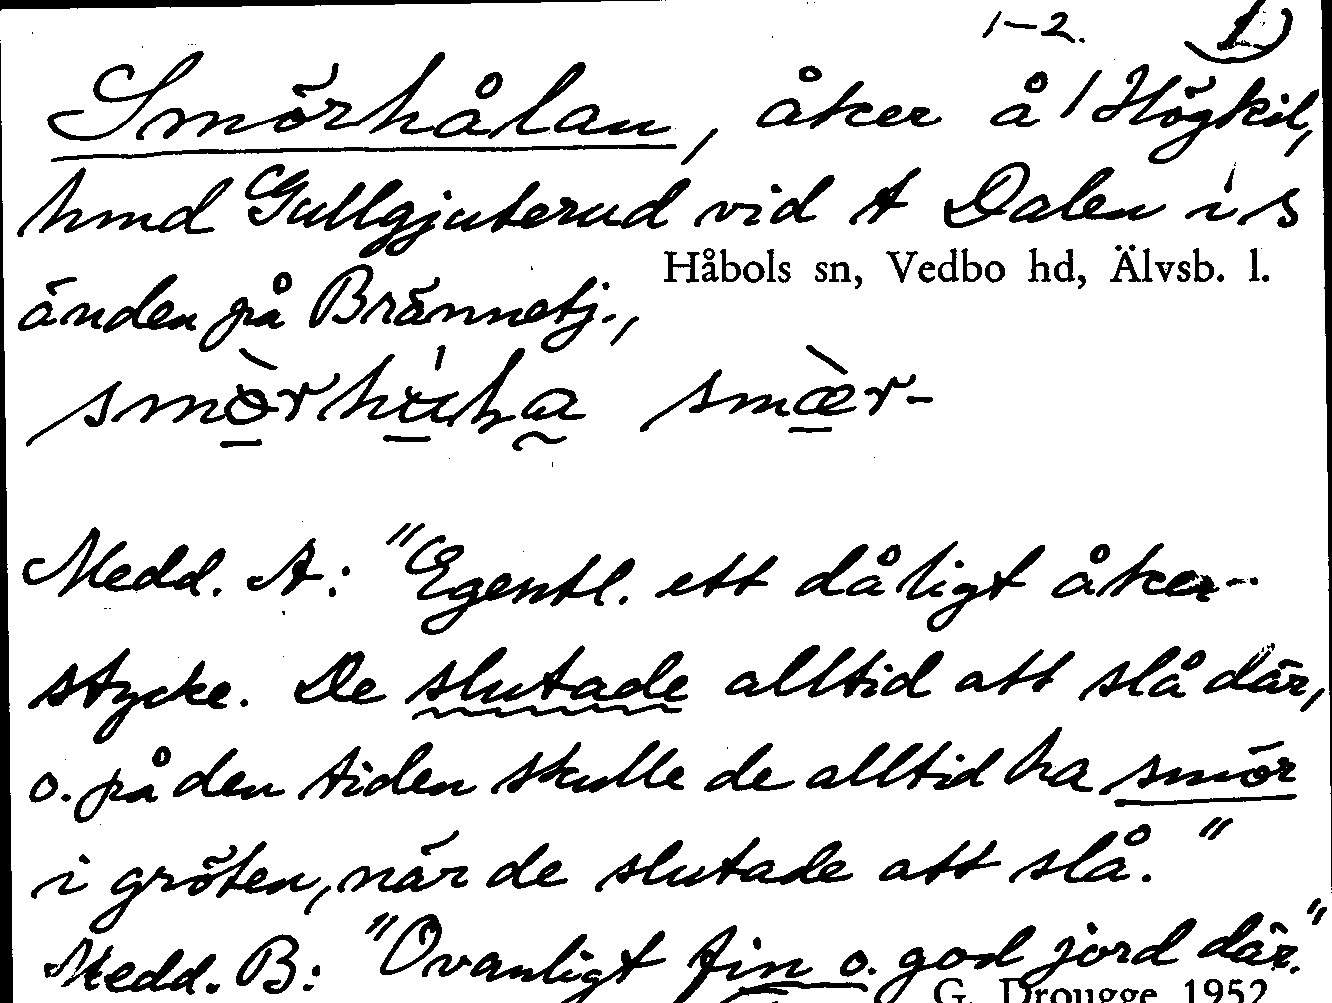 1-2. 1)
Smörhålan, åker å 1 Högkil,
hmd Gullgjuterud vid A Dalen i s
Håbols sn, Vedbo hd, Älvsb. l.
änden på Brännetj.,
Medd. A: "Egentl. ett dåligt åker-
stycke. De slutade alltid att slå där,
o. på den tiden skulle de alltid ha smör
i gröten, när de slutade att slå."
Medd. B: "Ovanligt fin o. god jord där."
G. Drougge 1952